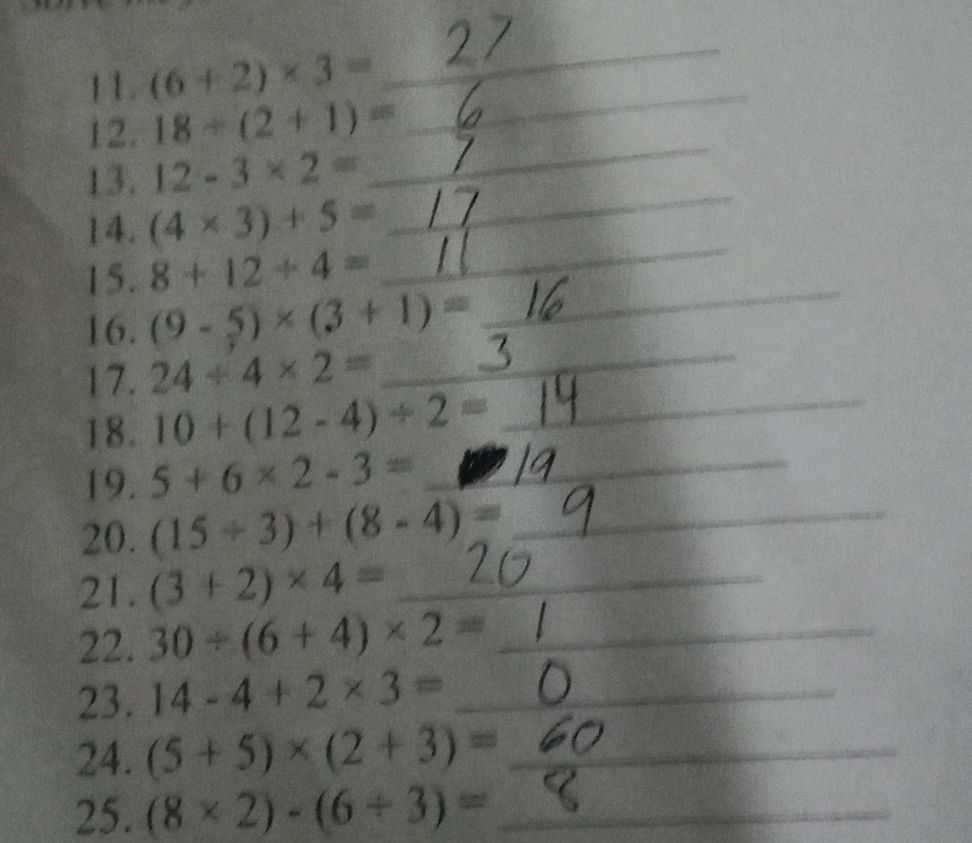 11. (6 + 2) × 3 = 27
12. 18 ÷ (2 + 1) = 6
13. 12 - 3 × 2 = 7
14. (4 × 3) + 5 = 17
15. 8 + 12 ÷ 4 = 11
16. (9 - 5) × (3 + 1) = 16
17. 24 ÷ 4 × 2 = 3
18. 10 + (12 - 4) ÷ 2 = 14
19. 5 + 6 × 2 - 3 = 19
20. (15 ÷ 3) + (8 - 4) = 9
21. (3 + 2) × 4 = 20
22. 30 ÷ (6 + 4) × 2 = 1
23. 14 - 4 + 2 × 3 = 0
24. (5 + 5) × (2 + 3) = 60
25. (8 × 2) - (6 ÷ 3) = 8